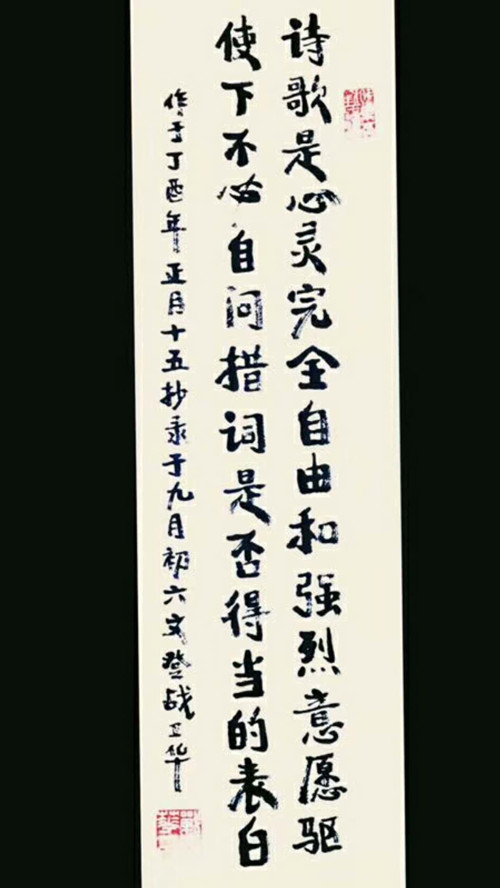 诗歌是心灵完全自由和强烈意愿驱
使下不必自问措词是否得当的表白
作于丁酉年正月十五抄录于九月初六文登战卫华